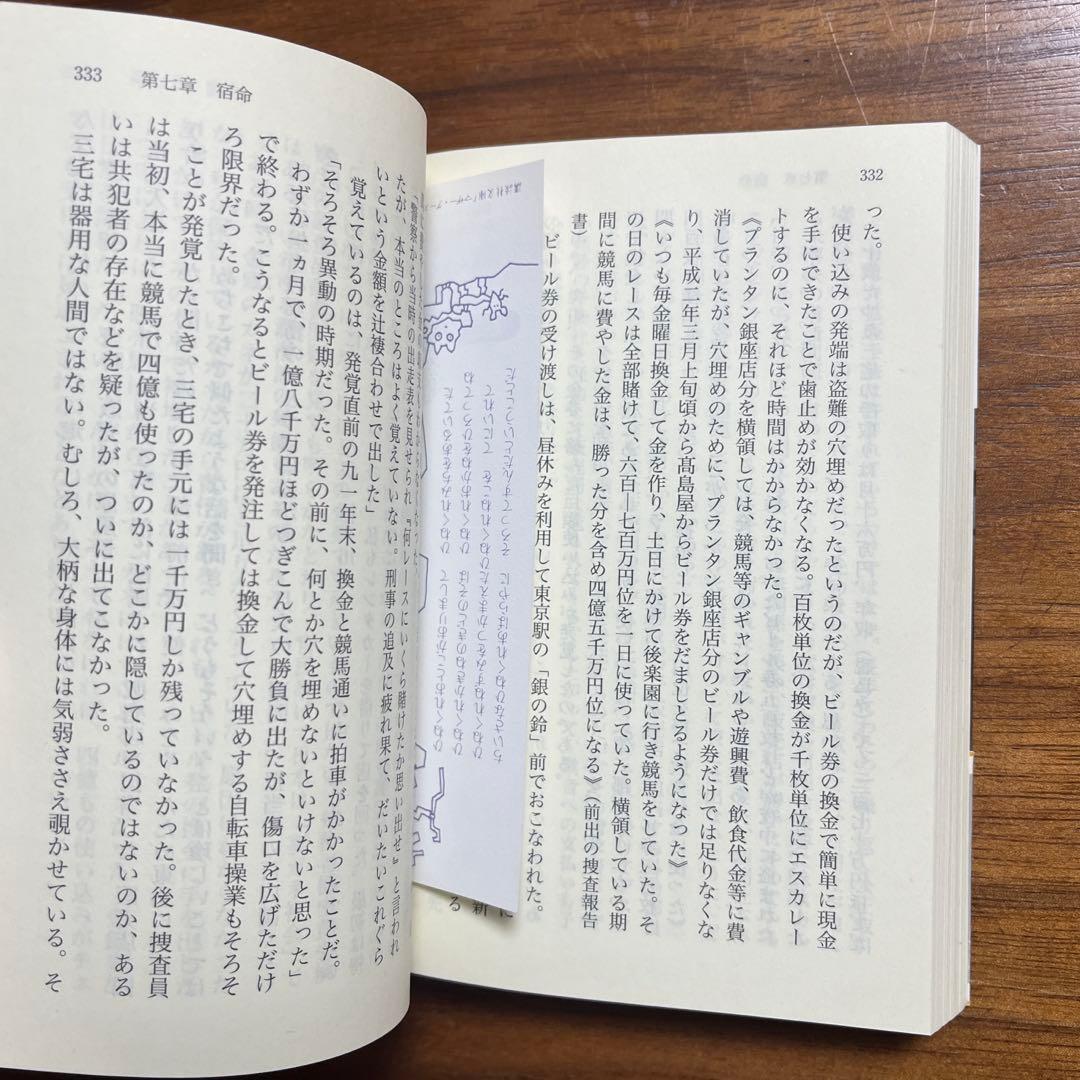 332
った。
使い込みの発端は盗難の穴埋めだったというのだが、ビール券の換金で簡単に現金
を手にできたことで歯止めが効かなくなる。百枚単位の換金が千枚単位にエスカレー
トするのに、それほど時間はかからなかった。
《プランタン銀座店分を横領しては、競馬等のギャンブルや遊興費、飲食代金等に費
消していたが、穴埋めのために、プランタン銀座店分のビール券だけでは足りなくな
り、平成二年三月上旬頃から髙島屋からビール券をだましとるようになった》
《いつも毎金曜日換金して金を作り、土日にかけて後楽園に行き競馬をしていた。そ
の日のレースは全部賭けて、六百―七百万円位を一日に使っていた。横領している期
間に競馬に費やした金は、勝った分を含め四億五千万円位になる》（前出の捜査報告
書）
ビール券の受け渡しは、昼休みを利用して東京駅の「銀の鈴」前でおこなわれた。
に
新
る
講談社文庫「マザー・グー
ひねくれおとこがおりまして　ひねくれみちをあるいてた
ひねくれかきねのきどのそば　ひねくれおかねをひろってね
ひねくれねずみをつかまえた　ひねくれねこを　てにいれて
ちいさなひねくれあばらやに　そろってすんだということだ
333　第七章　宿命
「警察から当時の出走表を見せられ『何レースにいくら賭けたか思い出せ』と言われ
たが、本当のところはよく覚えていない。刑事の追及に疲れ果て、だいたいこれぐら
いという金額を辻褄合わせで出した」
覚えているのは、発覚直前の九一年末、換金と競馬通いに拍車がかかったことだ。
「そろそろ異動の時期だった。その前に、何とか穴を埋めないといけないと思った」
わずか一ヵ月で、一億八千万円ほどつぎこんで大勝負に出たが、傷口を広げただけ
で終わる。こうなるとビール券を発注しては換金して穴埋めする自転車操業もそろそ
ろ限界だった。
ことが発覚したとき、三宅の手元には一千万円しか残っていなかった。後に捜査員
は当初、本当に競馬で四億も使ったのか、どこかに隠しているのではないのか、ある
いは共犯者の存在などを疑ったが、ついに出てこなかった。
三宅は器用な人間ではない。むしろ、大柄な身体には気弱ささえ覗かせている。そ